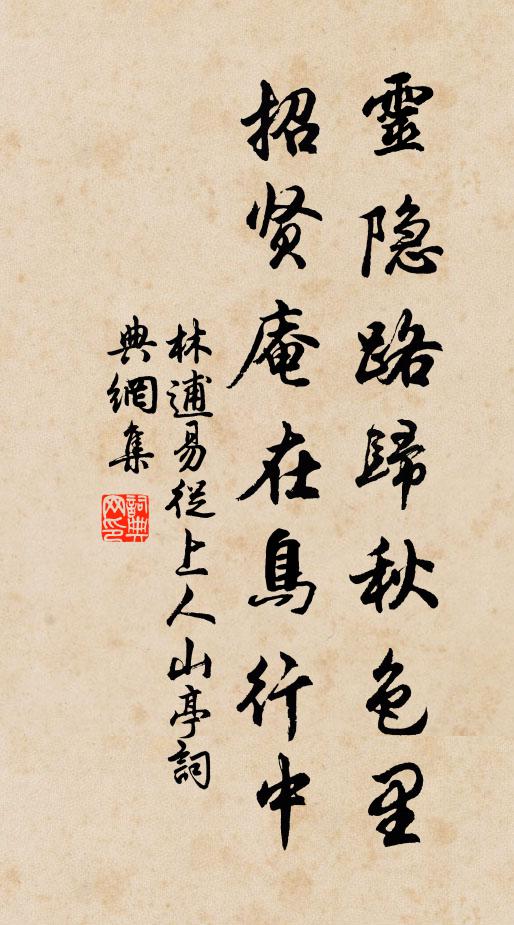 靈隐路歸秋色里
招贤庵在鳥行中
林逋易從上人山亭詞
典網集
詞典网印